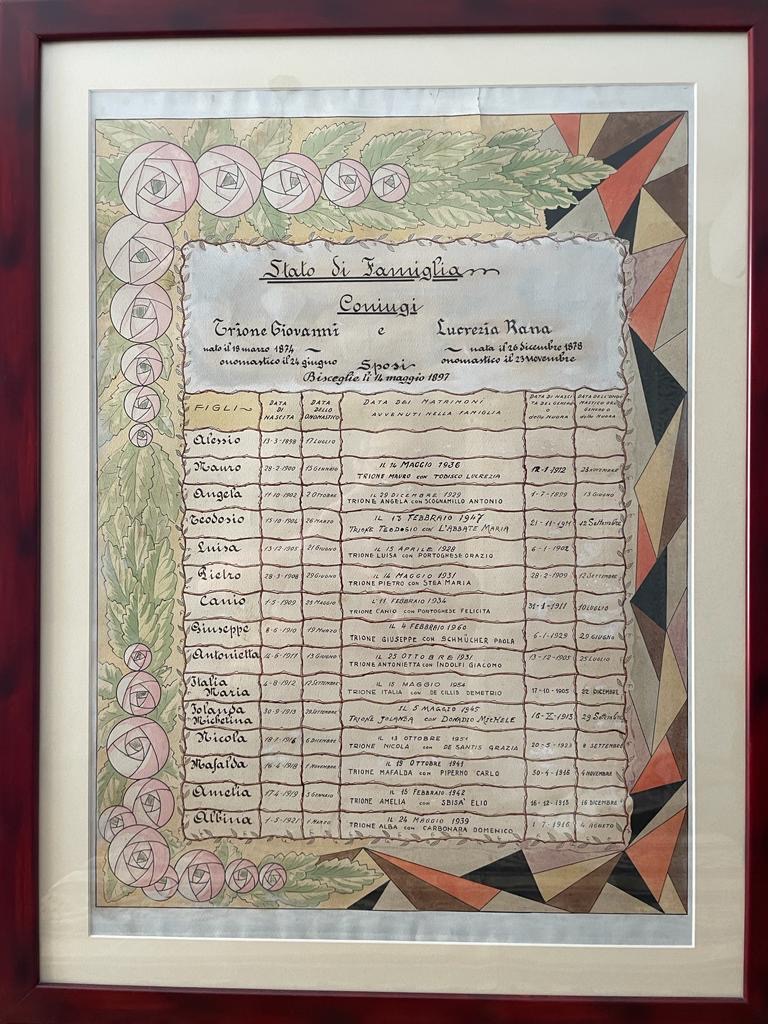 Stato di Famiglia
Coniugi
Trione Giovanni e Lucrezia Rana
nato il 19 marzo 1874 nata il 26 dicembre 1878
onomastico il 24 giugno onomastico il 23 novembre
Sposi
Bisceglie li 14 maggio 1897
FIGLI DATA DI NASCITA DATA DELLO ONOMASTICO DATA DEI MATRIMONI AVVENUTI NELLA FAMIGLIA DATA DI NASCITA DEL GENERO O della NUORA DATA DELL'ONOMASTICO DEL GENERO O della NUORA
Alessio 13-3-1898 17 LUGLIO
Mauro 28-2-1900 15 GENNAIO IL 14 MAGGIO 1936 TRIONE MAURO con TODISCO LUCREZIA 12-1-1912 23 NOVEMBRE
Angela 11-10-1902 2 OTTOBRE IL 29 DICEMBRE 1929 TRIONE ANGELA con SCOGNAMILLO ANTONIO 1-7-1899 13 GIUGNO
Teodosio 15-10-1904 26 MARZO IL 13 FEBBRAIO 1947 TRIONE TEODOSIO con L'ABBATE MARIA 21-11-1911 12 Settembre
Luisa 13-12-1905 21 GIUGNO IL 15 APRILE 1928 TRIONE LUISA con PORTOGHESE ORAZIO 6-1-1902
Pietro 28-3-1908 29 GIUGNO IL 14 MAGGIO 1931 TRIONE PIETRO con STEA MARIA 28-2-1909 12 SETTEMBRE
Canio 1-5-1909 25 MAGGIO L'11 FEBBRAIO 1934 TRIONE CANIO con PORTOGHESE FELICITA 31-1-1911 10 LUGLIO
Giuseppe 8-6-1910 19 MARZO IL 4 FEBBRAIO 1960 TRIONE GIUSEPPE con SCHMÜCHER PAOLA 6-1-1929 29 GIUGNO
Antonietta 14-6-1911 13 GIUGNO IL 25 OTTOBRE 1931 TRIONE ANTONIETTA con INDOLFI GIACOMO 13-12-1905 25 LUGLIO
Italia Maria 4-8-1912 12 SETTEMBRE IL 15 MAGGIO 1954 TRIONE ITALIA con DE CILLIS DEMETRIO 17-10-1905 22 DICEMBRE
Iolanda Micherina 30-9-1913 29 SETTEMBRE IL 5 MAGGIO 1945 TRIONE JOLANDA con DONADIO MICHELE 16-X-1913 29 Settembre
Nicola 6 DICEMBRE IL 13 OTTOBRE 1951 TRIONE NICOLA con DE SANTIS GRAZIA 20-5-1923 8 SETTEMBRE
Mafalda 16-4-1918 1 NOVEMBRE IL 19 OTTOBRE 1941 TRIONE MAFALDA con PIPERNO CARLO 30-4-1916 4 NOVEMBRE
Amelia 17-4-1919 5 GENNAIO IL 15 FEBBRAIO 1942 TRIONE AMELIA con SBISA' ELIO 16-12-1913 16 DICEMBRE
Albina 1-5-1921 1 MARZO IL 24 MAGGIO 1939 TRIONE ALBA con CARBONARA DOMENICO 1-7-1916 4 AGOSTO